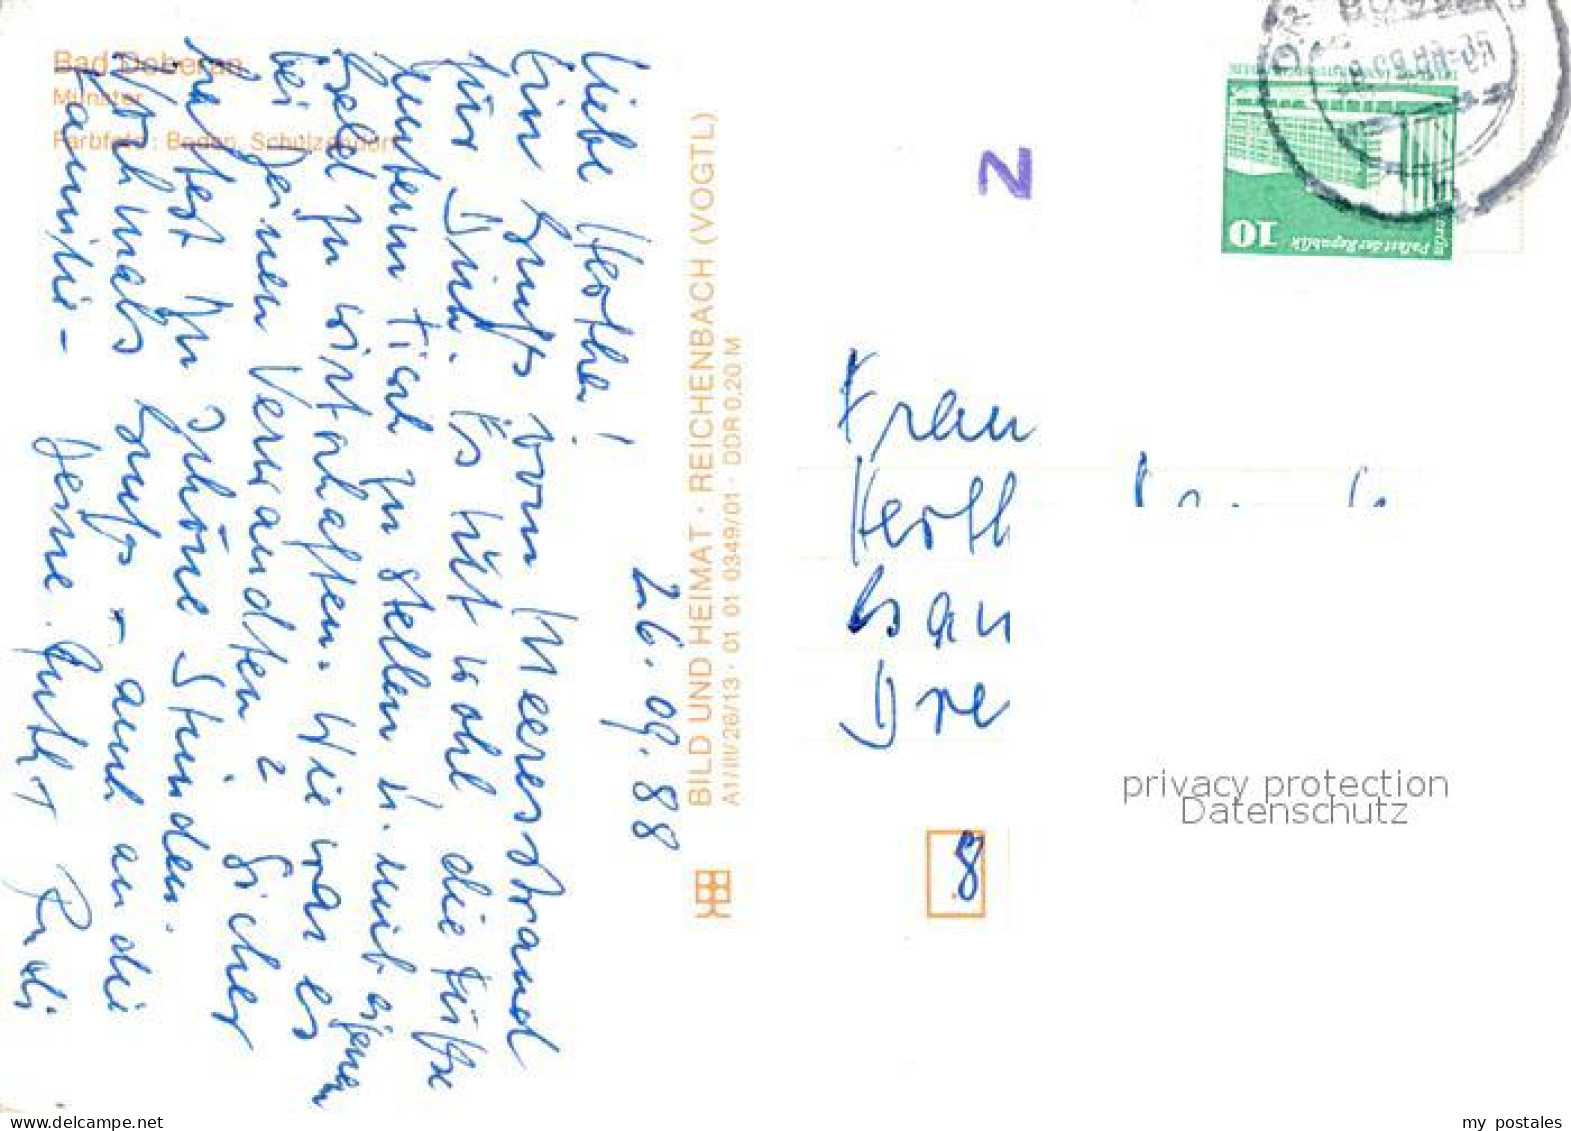 Bad Doberan
Münster
Farbfoto: Boden, Schulzendorf
26.09.88
Liebe Hertha!
Ein Gruß vom Meeresstrand
für Dich. Es tut wohl die Füße
unterm Tisch zu stellen u. mit eigenen
Geld zu wirtschaften. Wie war es
bei Deinen Verwandten? Sicher
hattest Du schöne Stunden.
Nochmals Gruß + auch an die
Familie - Deine Ruth + Rudi
BILD UND HEIMAT · REICHENBACH (VOGTL)
A1/III/26/13 · 01 01 0349/01 · DDR 0,20 M
Z
10
Palast der Republik
Berlin
Frau
Herth
Bau
Dre
8
privacy protection
Datenschutz
my postales